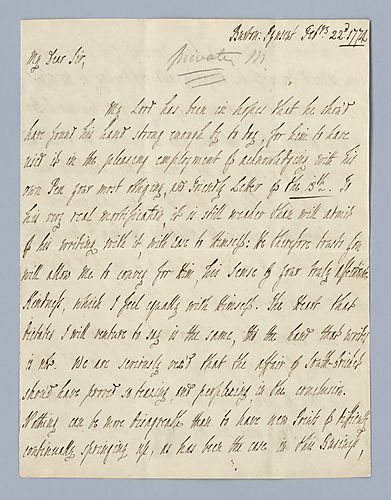 Burton Pynsent Feb.ry 22d 1774
Private
My Dear Sir,
My Lord has been in hopes that he shou'd
have found his hand strong enough by to day, for him to have
us'd it in the pleasing employment of acknowledging with his
own Pen your most obliging, and Friendly Letter of the 13th. To
his very real mortification, it is still weaker than will admit
of his writing with it, with ease to Himself: He therefore trusts You
will allow me to convey for Him, His sense of your truly affectionate
Kindness, which I feel equally with Himself. The Heart that
dictates I will venture to say is the same, tho the hand that writes
is not. We are seriously vex'd that the affair of
should have proved so teazing and perplexing in the conclusion.
Nothing can be more disagreable than to have new Points of difficulty
continually springing up, as has been the case in this Business,